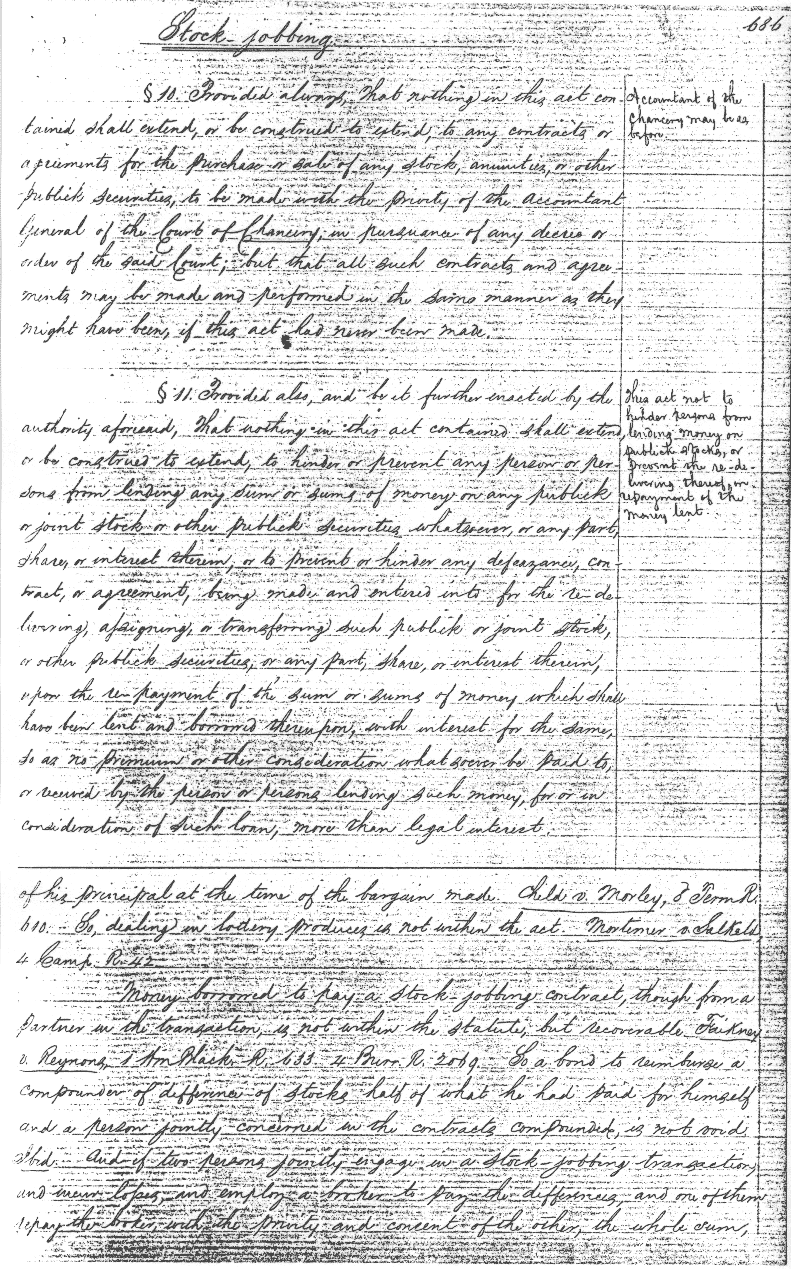 Stock-jobbing.
686
§ 10. Provided always, That nothing in this act con-
tained shall extend, or be construed to extend, to any contracts or
agreements for the purchase or sale of any stock, annuities, or other
publick securities, to be made with the privity of the Accountant
General of the Court of Chancery, in pursuance of any decree or
order of the said Court; but that all such contracts and agree-
ments may be made and performed in the same manner as they
might have been, if this act had never been made.
Accountant of the
Chancery may be as
before.
§ 11. Provided also, and be it further enacted by the
authority aforesaid, That nothing in this act contained shall extend,
or be construed to extend, to hinder or prevent any person or per-
sons from lending any sum or sums of money on any publick
or joint stock or other publick securities whatsoever, or any part,
share, or interest therein, or to prevent or hinder any defeazance, con-
tract, or agreement, being made and entered into for the re-de-
livering, assigning, or transferring such publick or joint stock,
or other publick securities, or any part, share, or interest therein,
upon the re-payment of the sum or sums of money which shall
have been lent and borrowed thereupon, with interest for the same,
so as no premium or other consideration whatsoever be paid to,
or received by the person or persons lending such money, for or in
consideration of such loan, more than legal interest.
This act not to
hinder persons from
lending money on
publick stocks, or
prevent the re-de-
livering thereof, on
repayment of the
money lent.
of his principal at the time of the bargain made. Child v. Morley, 8 Term R.
610. So, dealing in lottery produces is not within the act. Mortimer v. Salkeld,
4 Camp. R. 42
Money borrowed to pay a stock-jobbing contract, though from a
partner in the transaction, is not within the statute, but recoverable. Faikney
v. Reynous, 1 Wm Black. R. 633 4 Burr. R. 2069. So a bond to reimburse a
compounder of difference of stocks half of what he had paid for himself
and a person jointly concerned in the contracts compounded, is not void
Ibid. And if two persons jointly engage in a stock-jobbing transaction,
and incur losses, and employ a broker to pay the differences, and one of them
repay the broker, with the privity and consent of the other, the whole sum,